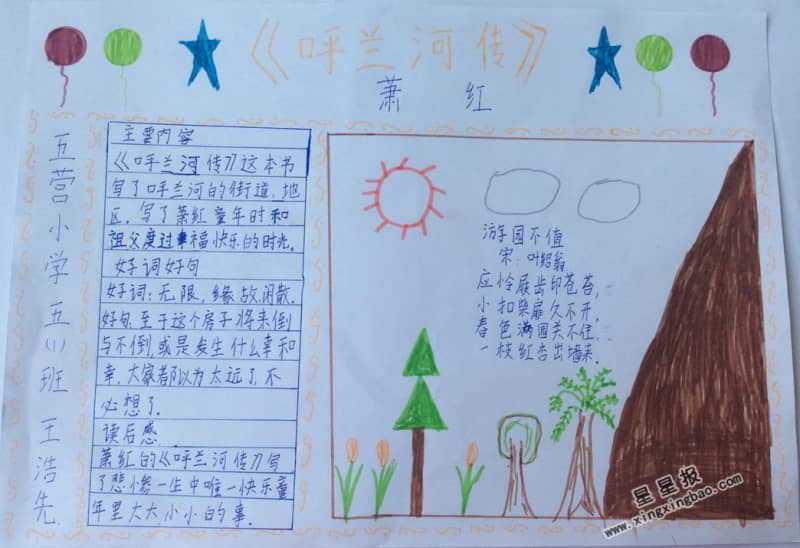 《呼兰河传》
萧 红
五营小学 五(1)班 王浩先
主要内容
《呼兰河传》这本书
写了呼兰河的街道,地
区。写了萧红童年时和
祖父度过幸福快乐的时光。
好词好句
好词:无限,缘故,闲散.
好句:至于这个房子将来倒
与不倒,或是发生什么幸和
幸,大家都以为太远了,不
必想了.
读后感.
萧红的《呼兰河传》写
了悲惨一生中唯一快乐童
年里大大小小的事.
游园不值
宋 叶绍翁
应怜屐齿印苍苔,
小扣柴扉久不开.
春色满园关不住,
一枝红杏出墙来.
星星报
www.xingxingbao.com